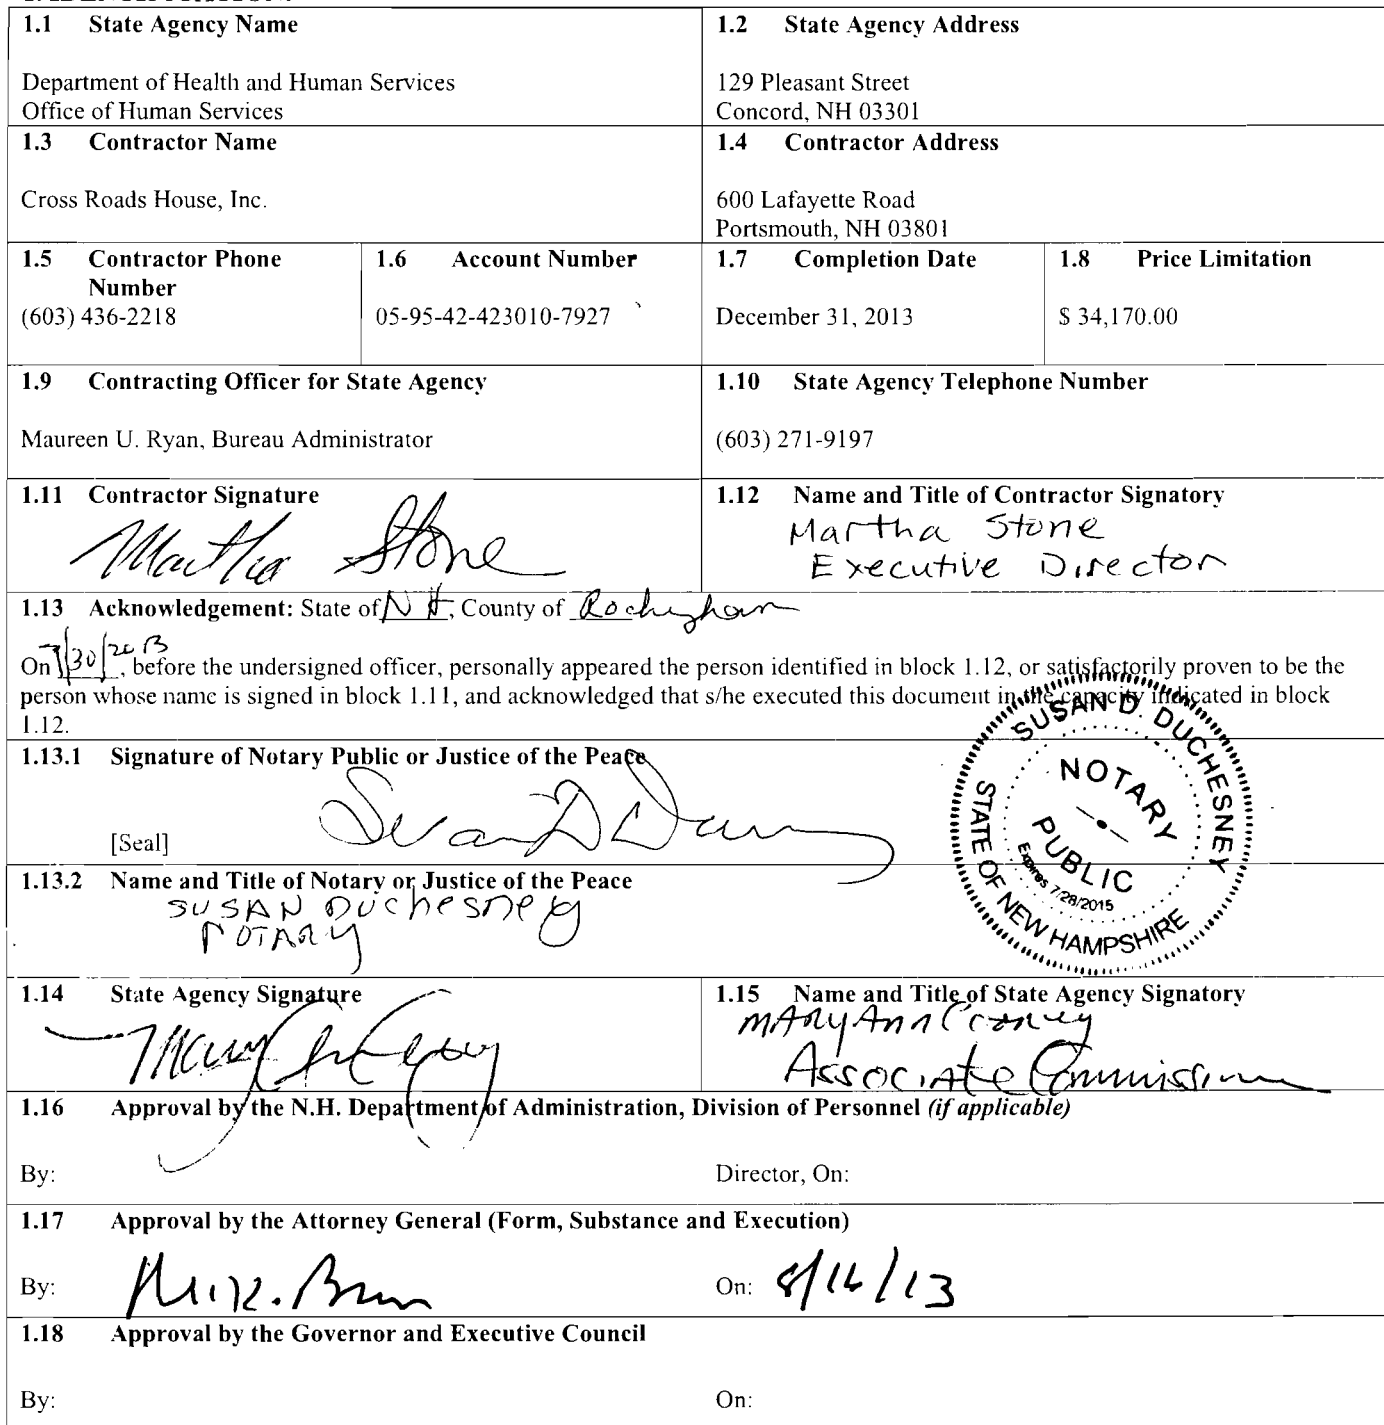 1.1 State Agency Name
Department of Health and Human Services
Office of Human Services
1.2 State Agency Address
129 Pleasant Street
Concord, NH 03301
1.3 Contractor Name
Cross Roads House, Inc.
1.4 Contractor Address
600 Lafayette Road
Portsmouth, NH 03801
1.5 Contractor Phone
Number
(603) 436-2218
1.6 Account Number
05-95-42-423010-7927
1.7 Completion Date
December 31, 2013
1.8 Price Limitation
$ 34,170.00
1.9 Contracting Officer for State Agency
Maureen U. Ryan, Bureau Administrator
1.10 State Agency Telephone Number
(603) 271-9197
1.11 Contractor Signature
Martha Stone
1.12 Name and Title of Contractor Signatory
Martha Stone
Executive Director
1.13 Acknowledgement: State of NH, County of Rockingham
On 7/30/2013, before the undersigned officer, personally appeared the person identified in block 1.12, or satisfactorily proven to be the
person whose name is signed in block 1.11, and acknowledged that s/he executed this document in the capacity indicated in block
1.12.
1.13.1 Signature of Notary Public or Justice of the Peace
[Seal]
SUSAN D. DUCHESNEY
NOTARY
PUBLIC
Expires 7/28/2015
STATE OF NEW HAMPSHIRE
1.13.2 Name and Title of Notary or Justice of the Peace
SUSAN Duchesney
NOTARY
1.14 State Agency Signature
1.15 Name and Title of State Agency Signatory
Mary Ann Cooney
Associate Commissioner
1.16 Approval by the N.H. Department of Administration, Division of Personnel (if applicable)
By:
Director, On:
1.17 Approval by the Attorney General (Form, Substance and Execution)
By:
On: 8/16/13
1.18 Approval by the Governor and Executive Council
By:
On: